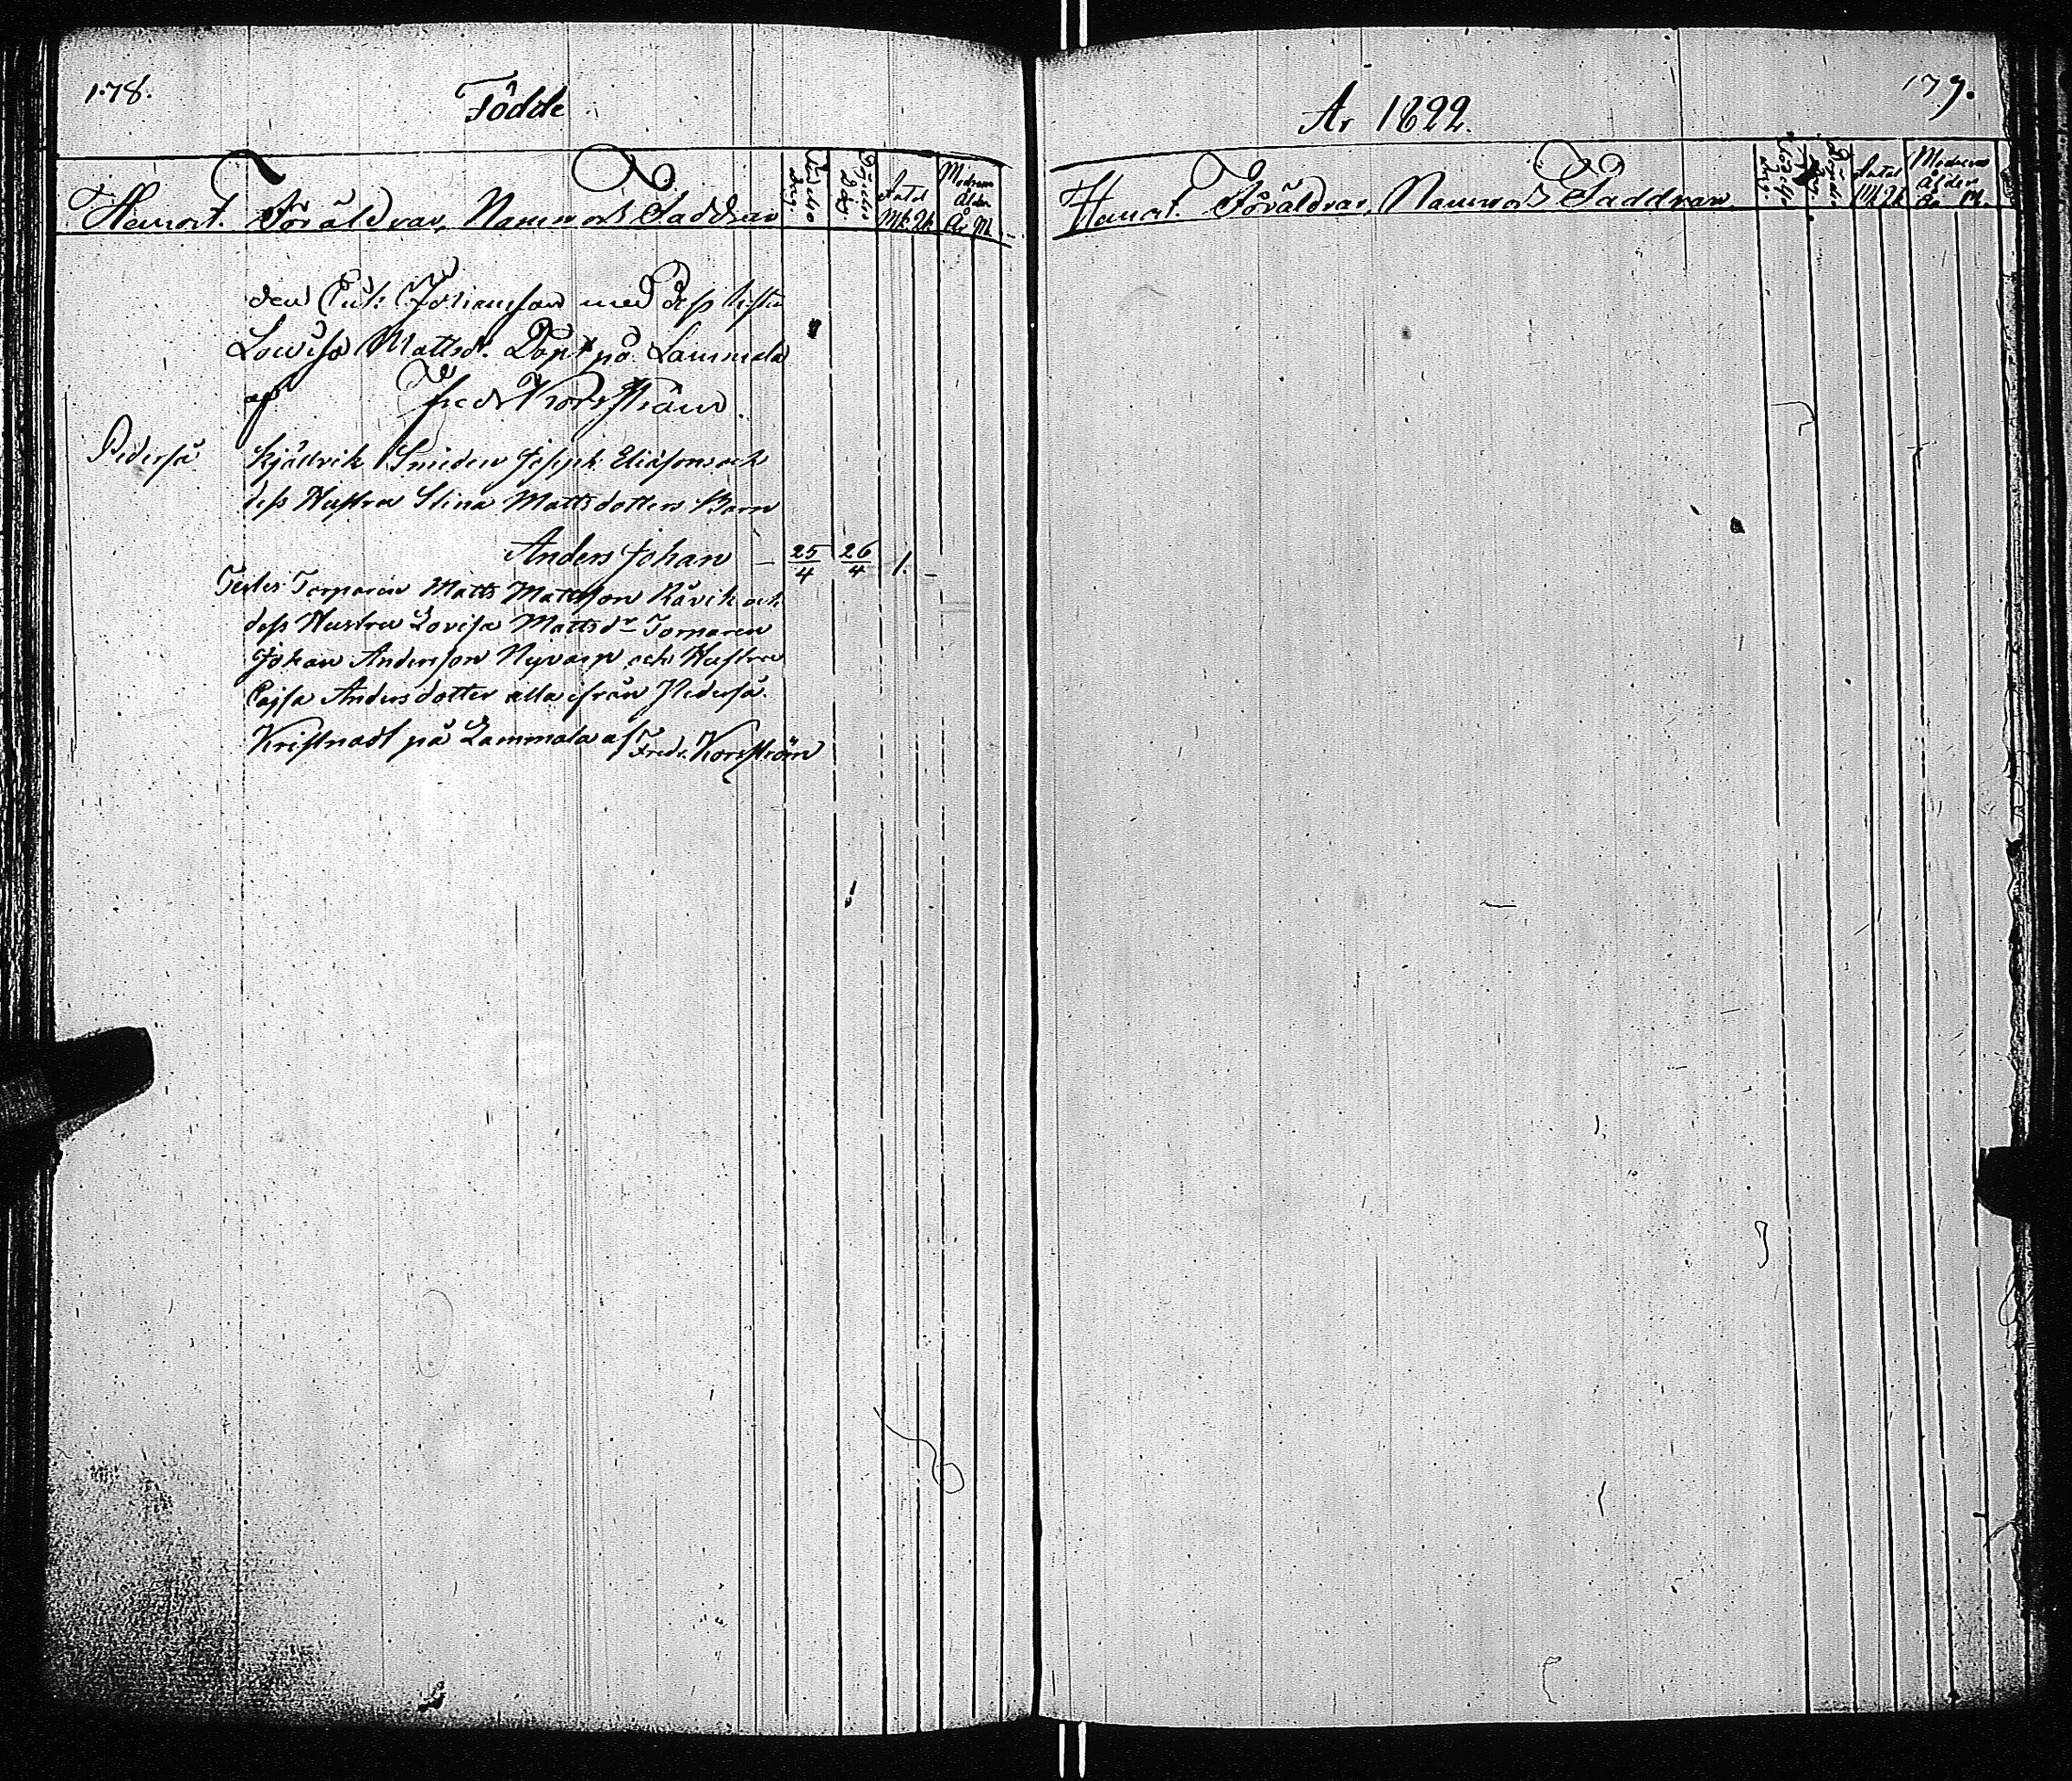 178.
Födde
Hemort. Föräldrar, Namn och Faddrar
Födelse dag.
Döpelse Dag
Antal
Mk. Qk.
Modrens Ålder
År M.
den Erik Johansson med dess hustru
Lowisa Mattsd:r Döpt på Lammala
af Fredr Korsström
Pederså
Kjällvik Smeden Joseph Eliasson och
dess Hustru Stina Mattsdotters Barn
Anders Johan — 25/4 26/4 1. –
Testes Torparen Matts Mattsson Råvik och
dess Hustru Lovisa Mattsdr Torparen
Johan Andersson Nyvarp och Hustru
Cajsa Andersdotter alla ifrån Pederså.
Kristnadt på Lammala af Fredr. Korsström
179.
År 1822.
Hemort. Föräldrar, Namn och Faddrar
Antal
Mk Qk
Modrens Ålder
År M.